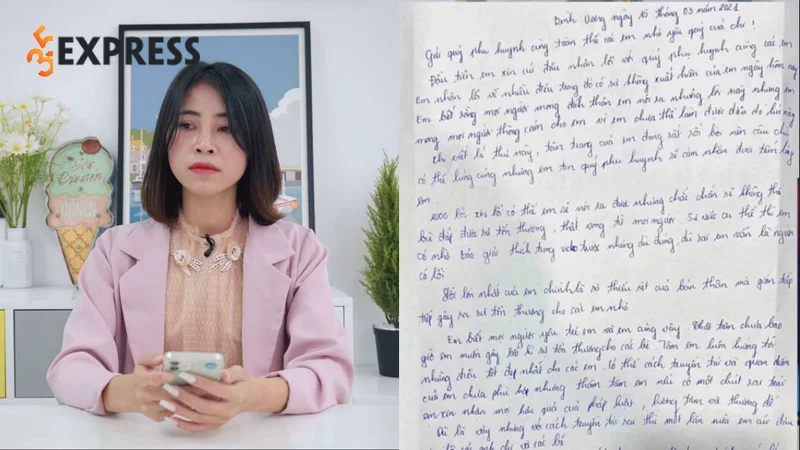 35 EXPRESS
Ice Cream
CONES
Bình Dương ngày 15 tháng 03 năm 2021
Gửi quý phụ huynh cùng toàn thể các em nhỏ yêu quý của chị,
Đầu tiên em xin cúi đầu nhận lỗi với quý phụ huynh cùng các em
Em nhận lỗi về nhiều điều trong đó có sự không xuất hiện của em ngày hôm nay
Em biết rằng mọi người mong đích thân em nói ra nhưng lời này nhưng em
mong mọi người thông cảm cho em vì em chưa thể làm được điều đó lúc này
Khi viết lá thư này, tâm trạng của em đang rất rối bời nên câu chữ
có thể lủng củng nhưng em tin quý phụ huynh sẽ cảm nhận được tấm lòng
em
lời xin lỗi có thể em sẽ nói ra được nhưng chắc chắn sẽ không thể
bù đắp được sự tổn thương, thất vọng từ mọi người. Sự việc cụ thể thì em
có nhờ báo giải thích trong video trước nhưng dù đúng, dù sai em vẫn là người
có lỗi
Lỗi lớn nhất của em chính là sự thiếu sót của bản thân mà gián tiếp
tiếp gây ra sự tổn thương cho các em nhỏ
Em biết mọi người yêu trẻ em và em cũng vậy. Thật tâm chưa bao
giờ em muốn gây bất kì sự tổn thương cho các bé. Tâm em luôn hướng tới
những điều tốt đẹp nhất cho các em. Có thể cách truyền tải và quan điểm
của em chưa phù hợp nhưng thâm tâm em nếu có một chút sai trái
em xin nhận mọi hậu quả của pháp luật, lương tâm và thượng đế
Dù là vậy nhưng với cách truyền tải sai thì một lần nữa em cúi đầu
xin lỗi các anh chị và các bé